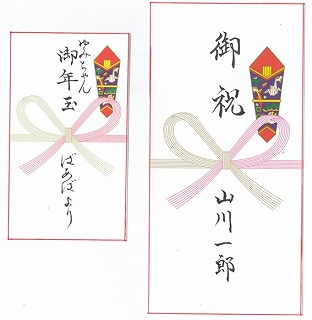 ゆみちゃん
御年玉
ばあばより
御祝
山川一郎